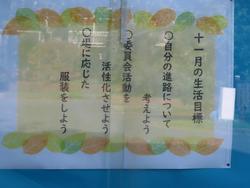 十一月の生活目標
〇自分の進路について
考えよう
〇委員会活動を
活性化させよう
〇場に応じた
服装をしよう